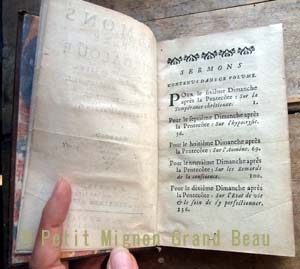 SERMONS
CONTENUS DANS CE VOLUME.
POUR le sixième Dimanche
après la Pentecôte : Sur la
Tempérance chrétienne : 1.
Pour le septième Dimanche
après la Pentecôte : Sur l'hypocrysie.
36.
Pour le huitième Dimanche après
la Pentecôte : Sur l'Aumône, 69.
Pour le neuvième Dimanche après
la Pentecôte : Sur les Remords
de la conscience. 100.
Pour le dixième Dimanche après
la Pentecôte : Sur l'Etat de vie
& le soin de s'y perfectionner.
136.
© Petit Mignon Grand Beau